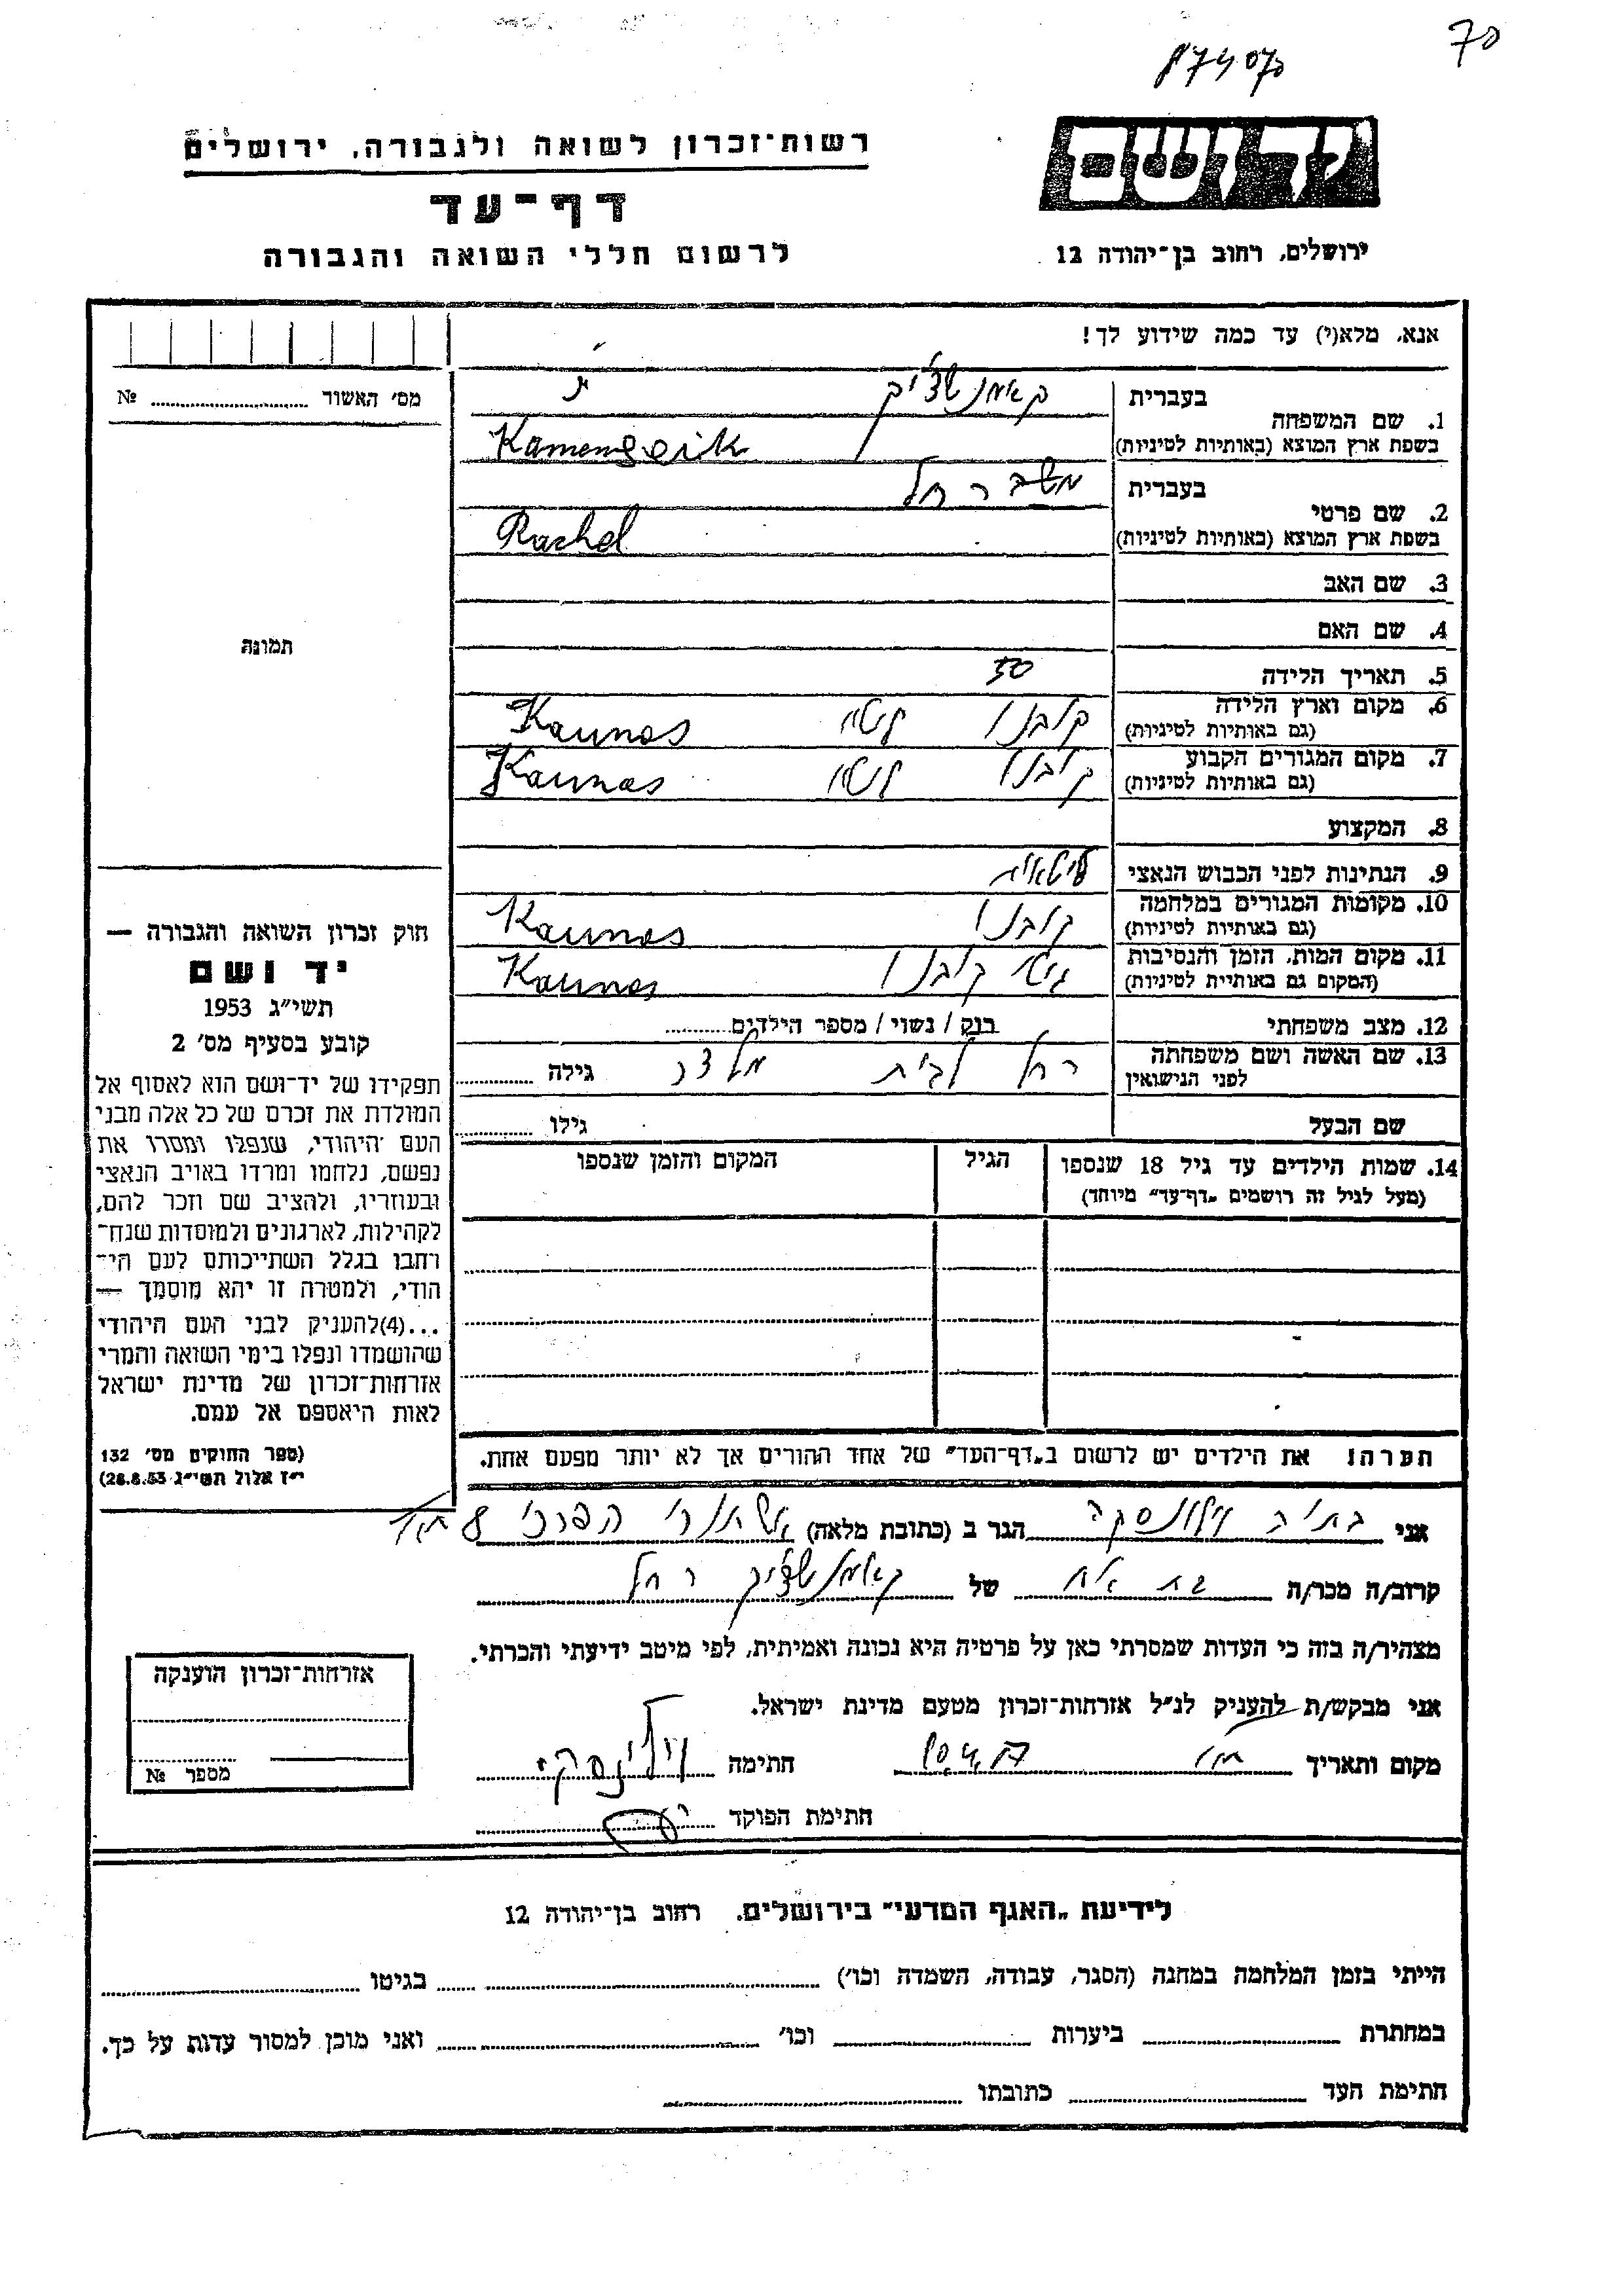 70
רשות־זכרון לשואה ולגבורה, ירושלים
יד ושם
דף־עד
לרשום חללי השואה והגבורה
ירושלים, רחוב בן־יהודה 12
אנא, מלא(י) עד כמה שידוע לך!
מס' האשור № ............
1. שם המשפחה
בעברית
בשפת ארץ המוצא (באותיות לטיניות)
2. שם פרטי
בעברית רחל
בשפת ארץ המוצא (באותיות לטיניות) Rachel
3. שם האב
4. שם האם
5. תאריך הלידה 50
6. מקום וארץ הלידה קובנו ליטא Kaunas
(גם באותיות לטיניות)
7. מקום המגורים הקבוע קובנו ליטא Kaunas
(גם באותיות לטיניות)
8. המקצוע
9. הנתינות לפני הכבוש הנאצי ליטאית
10. מקומות המגורים במלחמה קובנו Kaunas
(גם באותיות לטיניות)
11. מקום המות, הזמן והנסיבות גיטו קובנו Kaunas
(המקום גם באותיית לטיניות)
12. מצב משפחתי רוק / נשוי / מספר הילדים ............
13. שם האשה ושם משפחתה רחל לבית גילה ............
לפני הנישואין
שם הבעל גילו ............
14. שמות הילדים עד גיל 18 שנספו הגיל המקום והזמן שנספו
(מעל לגיל זה רושמים „דף־עד" מיוחד)
תמונה
חוק זכרון השואה והגבורה —
יד ושם
תשי"ג 1953
קובע בסעיף מס' 2
תפקידו של יד־ושם הוא לאסוף אל
המולדת את זכרם של כל אלה מבני
העם היהודי, שנפלו ומסרו את
נפשם, נלחמו ומרדו באויב הנאצי
ובעוזריו, ולהציב שם וזכר להם,
לקהילות, לארגונים ולמוסדות שנח־
רחבו בגלל השתייכותם לעם הי־
הודי, ולמטרה זו יהא מוסמך —
...(4)להעניק לבני העם היהודי
שהושמדו ונפלו בימי השואה והמרי
אזרחות־זכרון של מדינת ישראל
לאות היאספם אל עמם.
(ספר החוקים מס' 132
י"ז אלול תשי"ג 28.8.53)
הערה! את הילדים יש לרשום ב„דף־העד" של אחד ההורים אך לא יותר מפעם אחת.
אני בתיה הגר ב (כתובת מלאה) הפרחי 8
קרוב/ה מכר/ה בת אח של רחל
מצהיר/ה בזה כי העדות שמסרתי כאן על פרטיה היא נכונה ואמיתית, לפי מיטב ידיעתי והכרתי.
אני מבקש/ת להעניק לנ"ל אזרחות־זכרון מטעם מדינת ישראל.
מקום ותאריך חתימה
חתימת הפוקד
אזרחות־זכרון הוענקה
מספר №
לידיעת „האגף המדעי" בירושלים, רחוב בן־יהודה 12
הייתי בזמן המלחמה במחנה (הסגר, עבודה, השמדה וכו') ............ בגיטו ............
במחתרת ............ ביערות ............ וכו' ............ ואני מוכן למסור עדות על כך.
חתימת העד ............ כתובתו ............